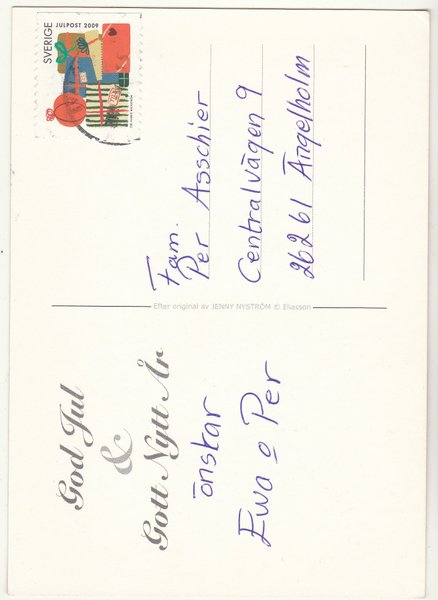 God Jul
&
Gott Nytt År
önskar
Ewa o Per
Efter original av JENNY NYSTRÖM © Eliasson
SVERIGE JULPOST 2009
Fam.
Per Asschier
Centralvägen 9
26261 Ängelholm